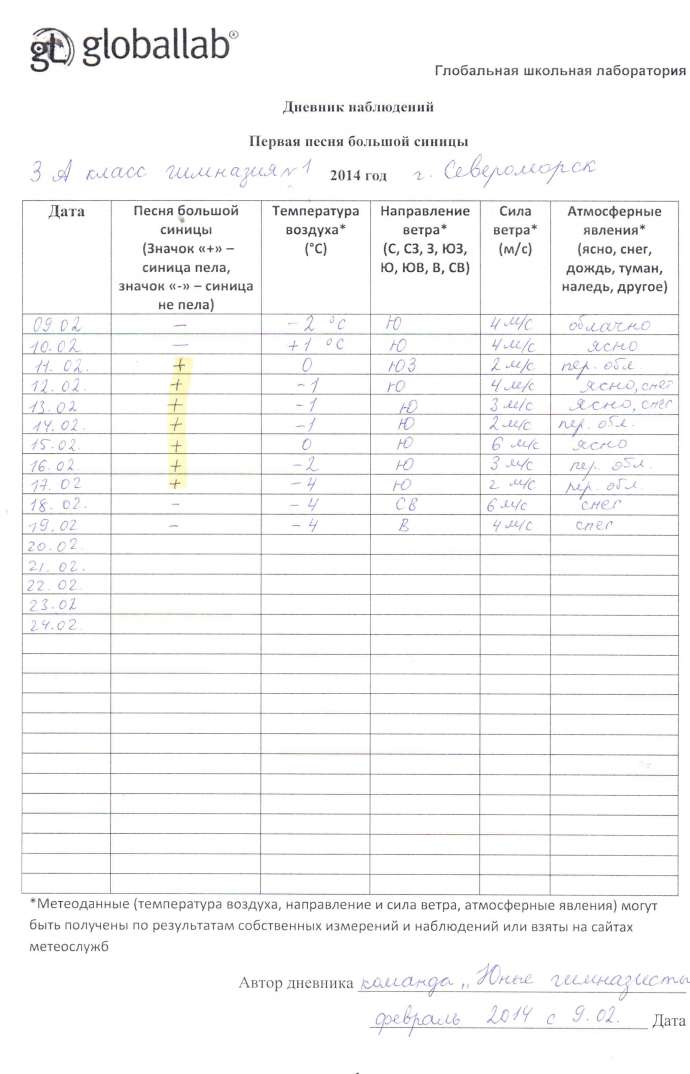 globallab®
Глобальная школьная лаборатория
Дневник наблюдений
Первая песня большой синицы
3 А класс гимназия №1 2014 год г. Североморск
Дата Песня большой синицы (Значок «+» – синица пела, значок «-» – синица не пела) Температура воздуха* (°C) Направление ветра* (С, СЗ, З, ЮЗ, Ю, ЮВ, В, СВ) Сила ветра* (м/с) Атмосферные явления* (ясно, снег, дождь, туман, наледь, другое)
09 02 – –2 °C Ю 4 м/с облачно
10.02 – +1 °C Ю 4 м/с ясно
11. 02. + 0 ЮЗ 2 м/с пер. обл.
12. 02. + –1 Ю 4 м/с ясно, снег
13. 02 + –1 Ю 3 м/с ясно, снег
14. 02 + –1 Ю 2 м/с пер. обл.
15. 02 + 0 Ю 6 м/с ясно
16. 02 + –2 Ю 3 м/с пер. обл.
17. 02 + –4 Ю 2 м/с пер. обл
18. 02. – –4 СВ 6 м/с снег
19. 02 – –4 В 4 м/с снег
20. 02
21. 02.
22. 02.
23.02
24.02.
*Метеоданные (температура воздуха, направление и сила ветра, атмосферные явления) могут
быть получены по результатам собственных измерений и наблюдений или взяты на сайтах
метеослужб
Автор дневника команда „Юные гимназисты
февраль 2014 с 9.02. Дата